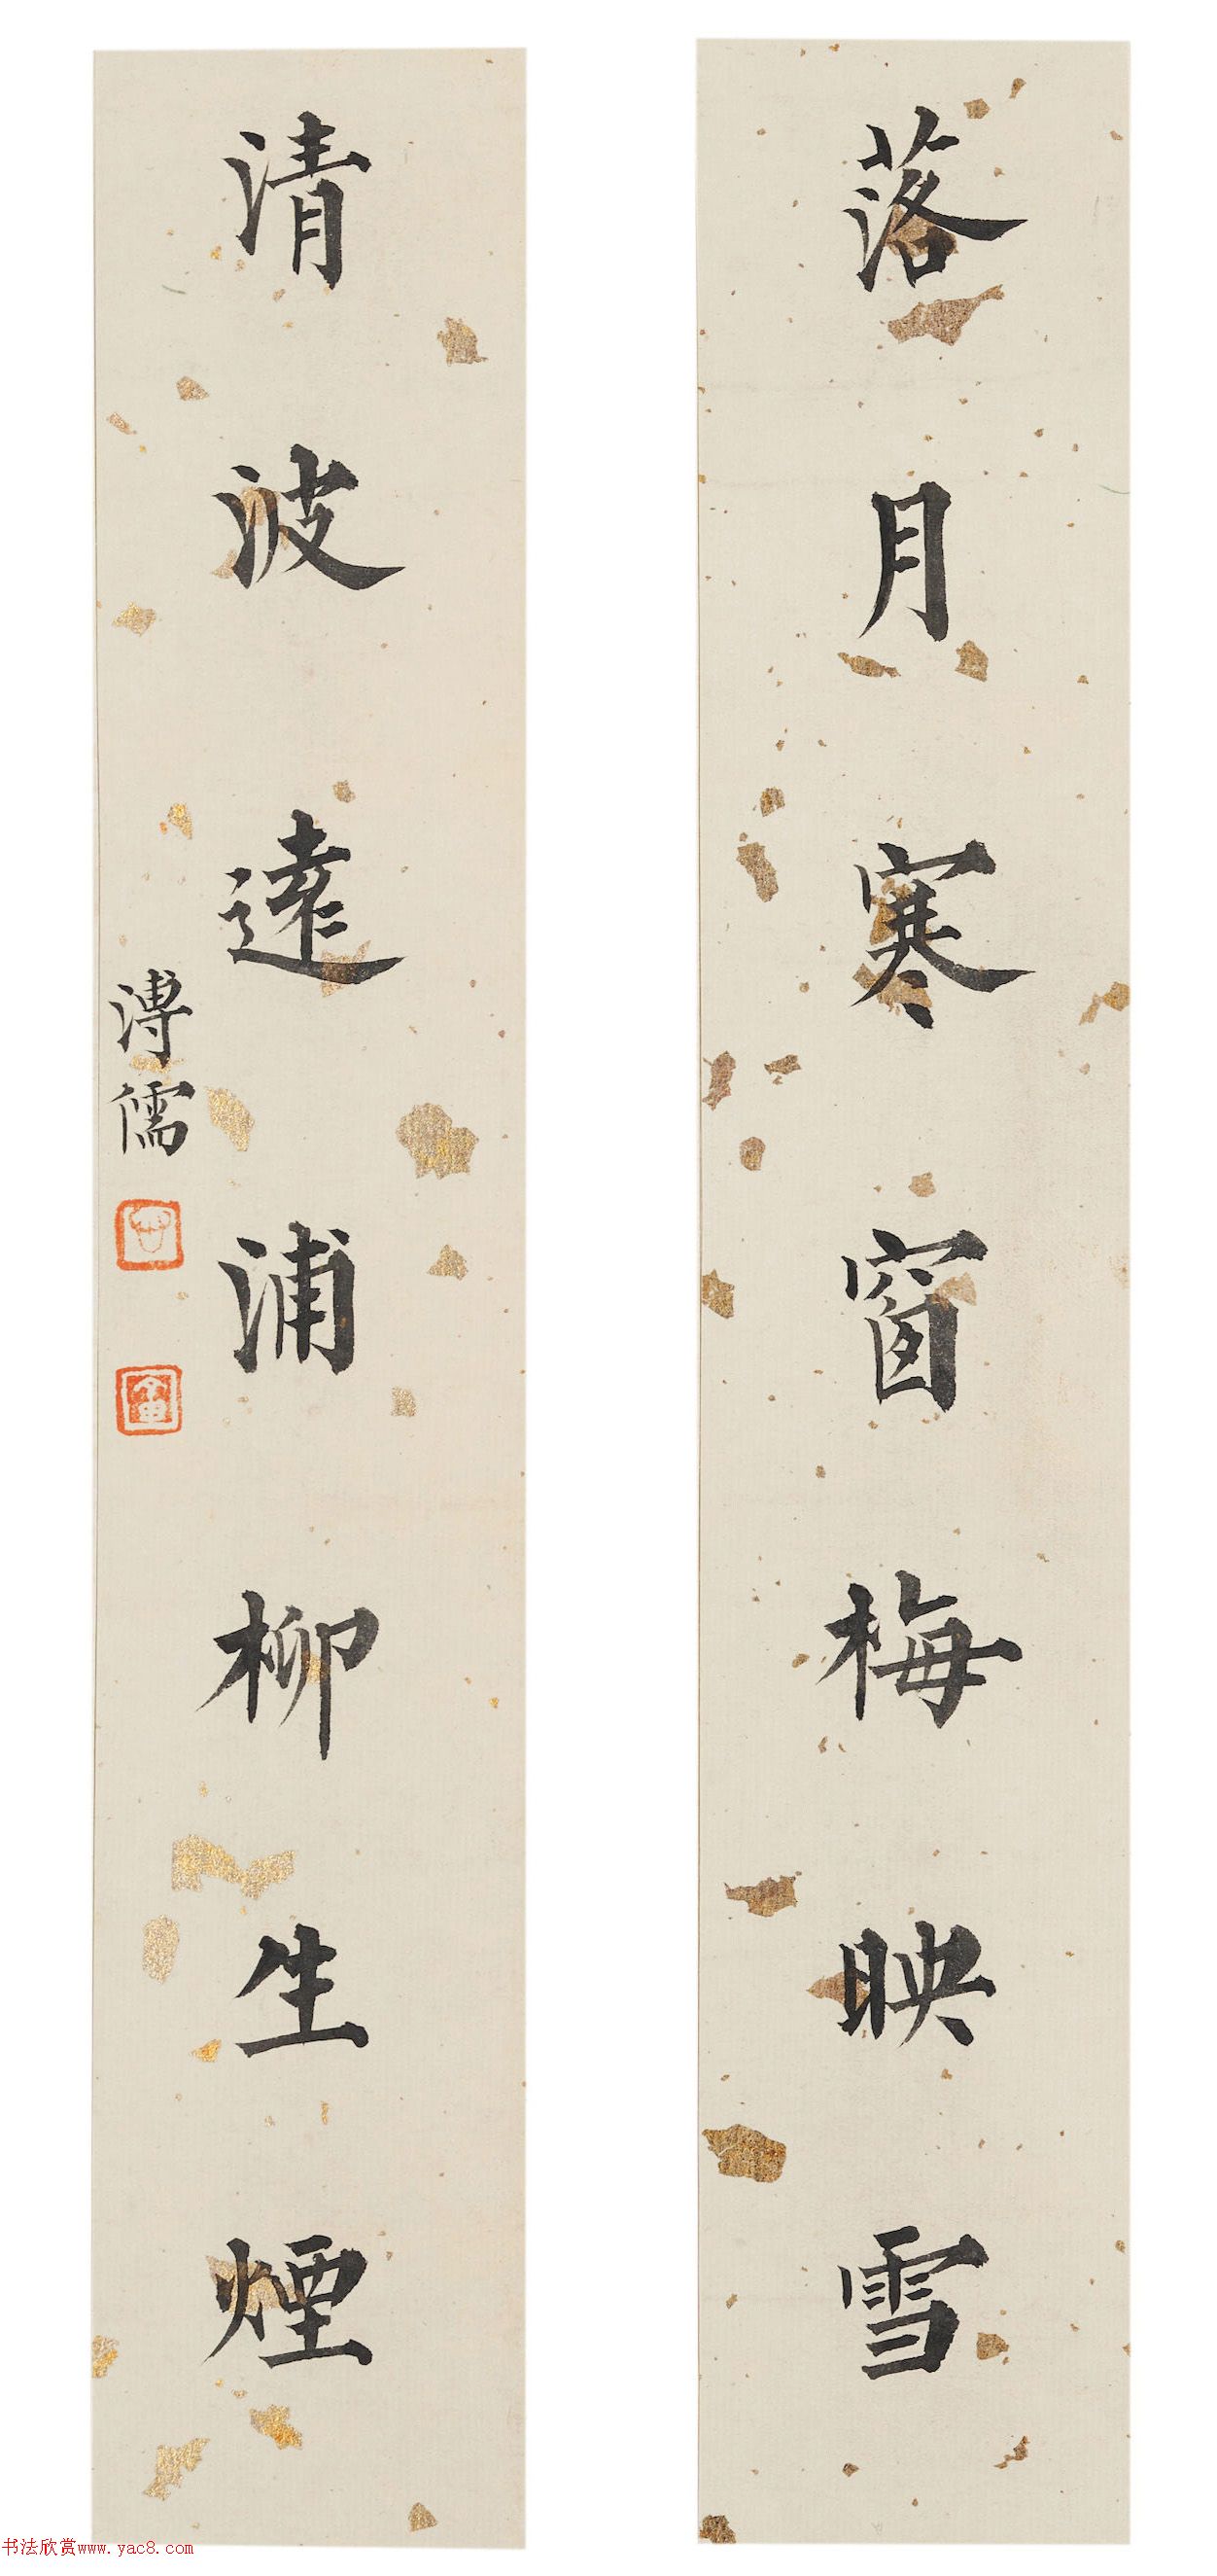 落月寒窗梅映雪
清波遠浦柳生煙
溥儒
书法欣赏www.yac8.com